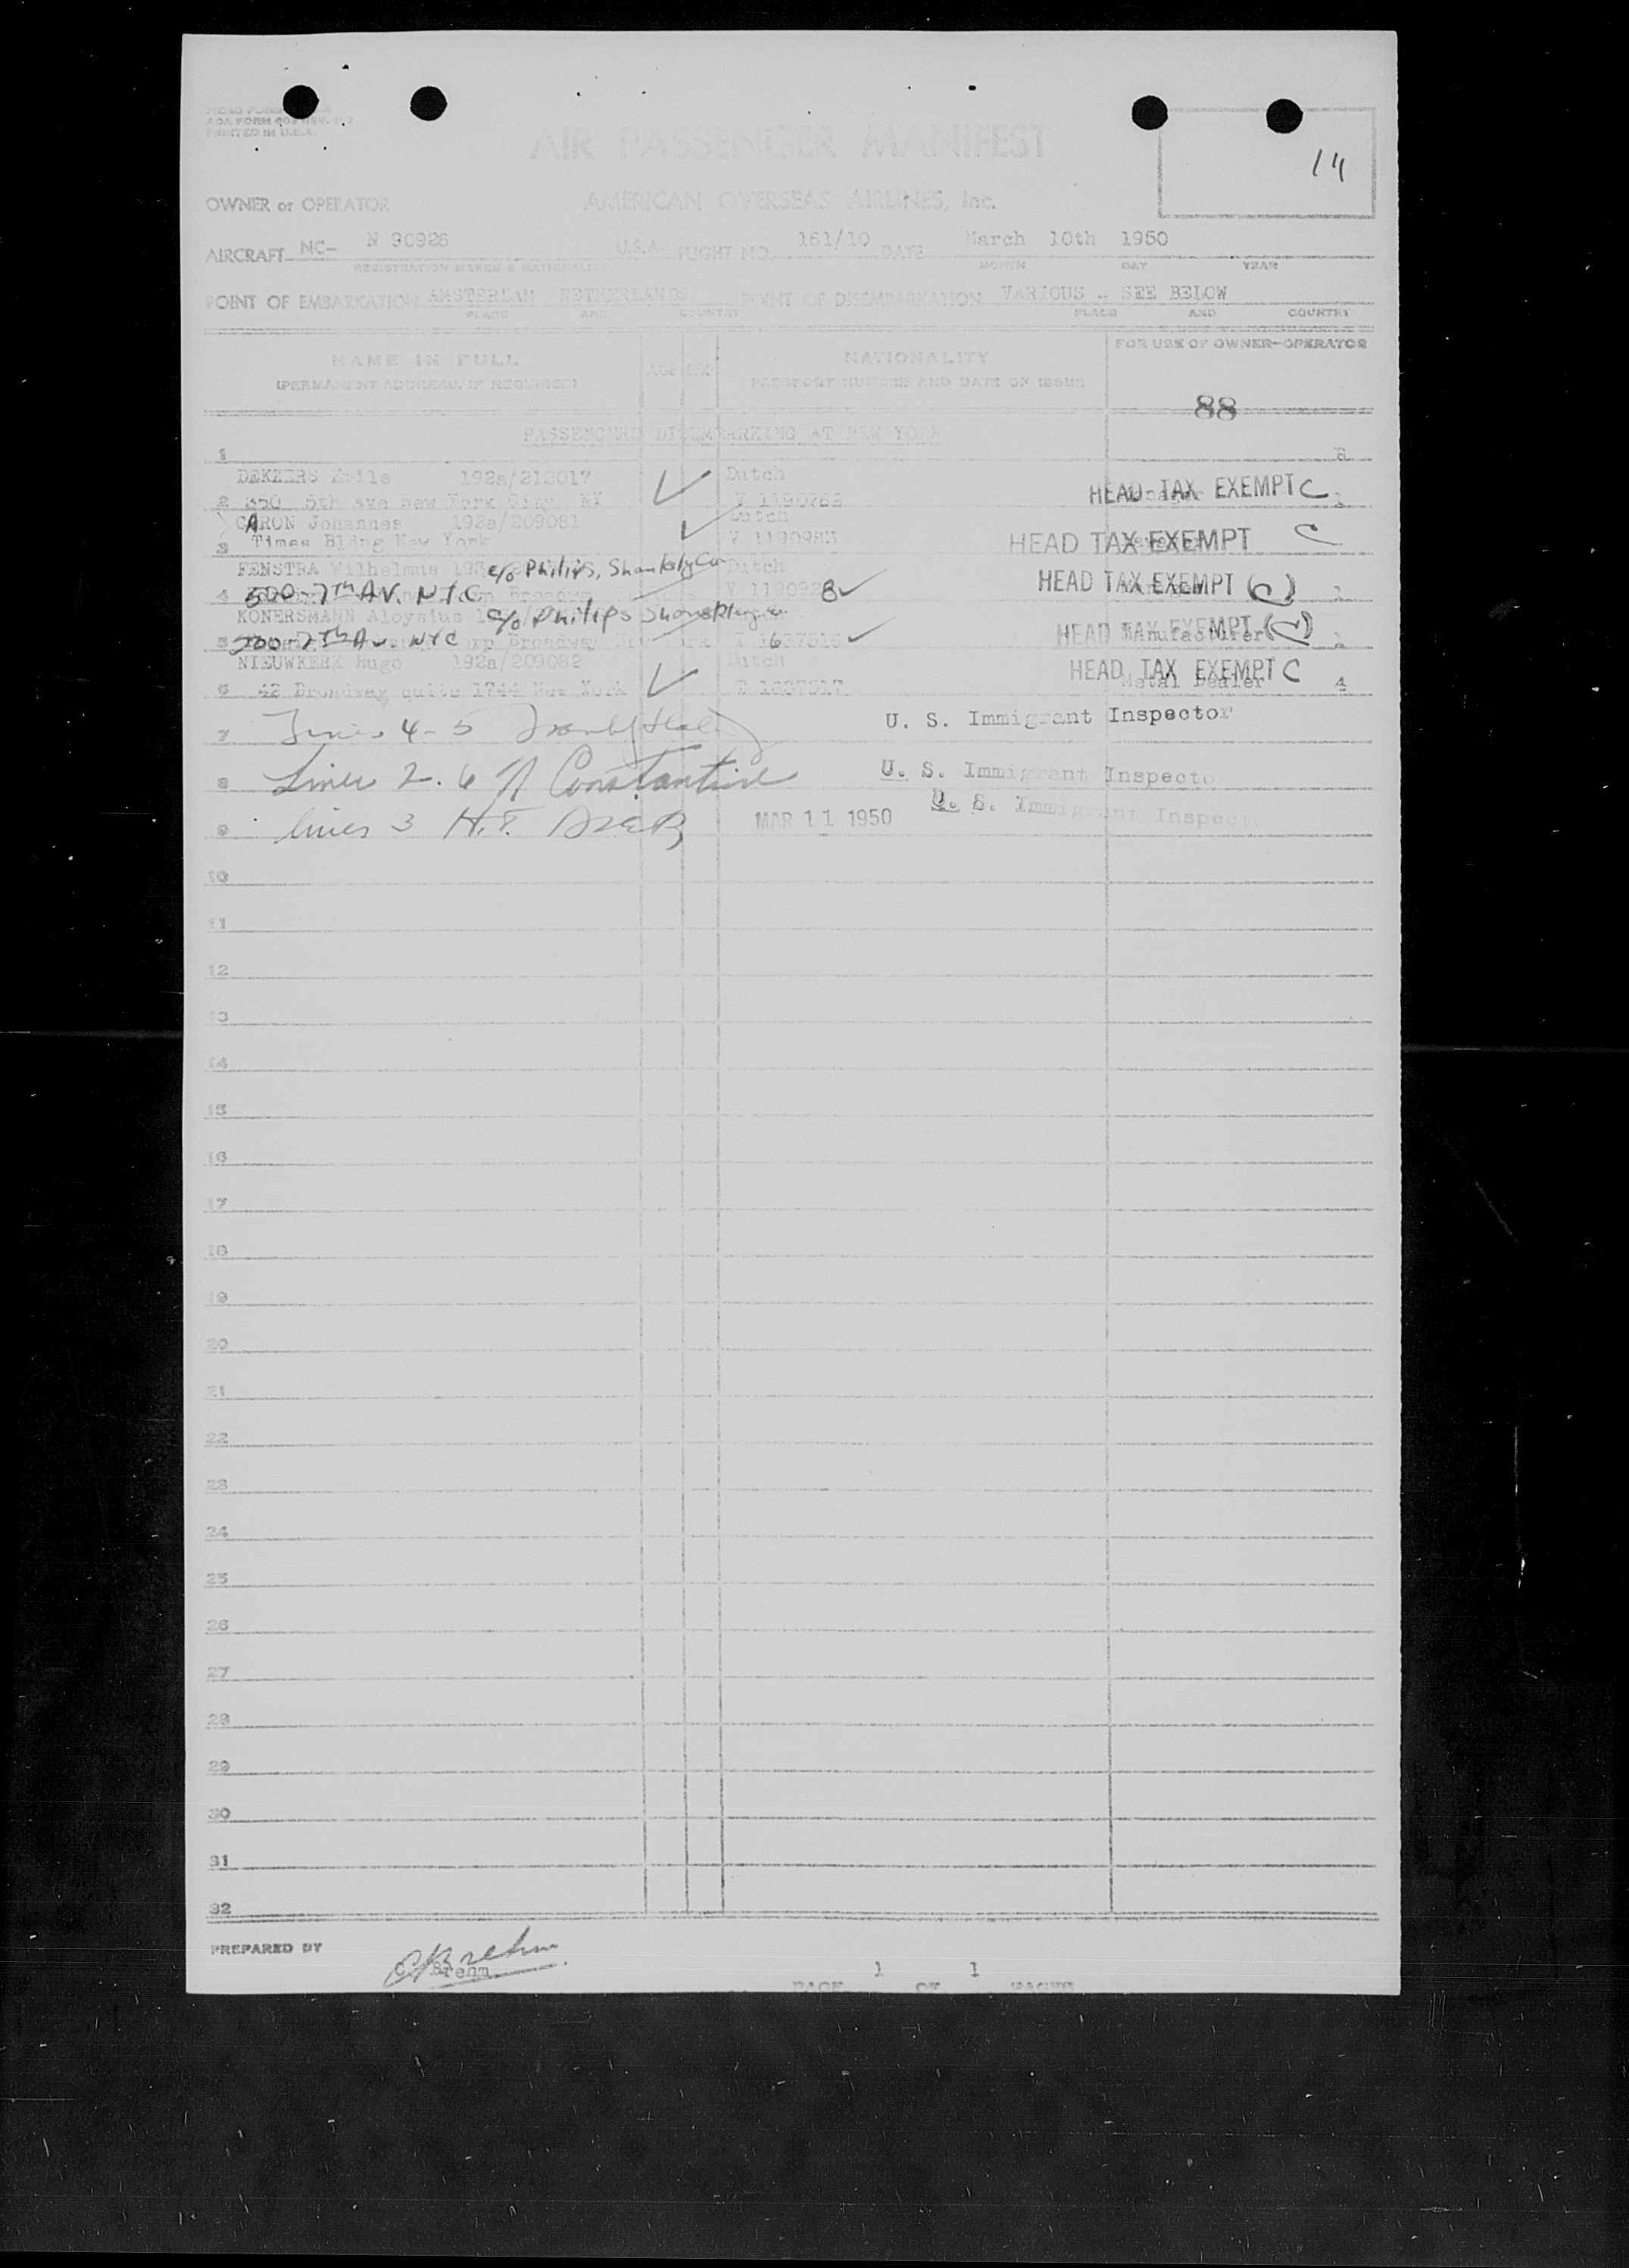 PRINTED IN U.S.A.
14
AIR PASSENGER MANIFEST
OWNER or OPERATOR AMERICAN OVERSEAS AIRLINES, Inc.
AIRCRAFT NC- N 90926 U.S.A. FLIGHT NO. 161/10 DATE March 10th 1950
REGISTRATION MARKS & NATIONALITY MONTH DAY YEAR
POINT OF EMBARKATION AMSTERDAM NETHERLANDS POINT OF DISEMBARKATION VARIOUS - SEE BELOW
PLACE AND COUNTRY PLACE AND COUNTRY
NAME IN FULL AGE SEX NATIONALITY FOR USE OF OWNER-OPERATOR
(PERMANENT ADDRESS, IF REQUIRED) PASSPORT NUMBER AND DATE OF ISSUE
88
PASSENGERS DISEMBARKING AT NEW YORK
1
DEKKERS Emile 192a/212017 Dutch
2 350 5th ave New York City NY V 1190762 HEAD TAX EXEMPT C
CARON Johannes 192a/209081 Dutch
3 Times Bldng New York HEAD TAX EXEMPT C
FENSTRA Wilhelmus c/o Philips, Dutch
4 500-7th AV. NYC 8 HEAD TAX EXEMPT (C)
KONERSMANN Aloysius c/o Philips
5 500-7th Av. NYC HEAD TAX EXEMPT (C) Manufacturer
NIEUWKERK Hugo 192a/209082 Dutch HEAD TAX EXEMPT C
6 42 Broadway suite 1744 New York Metal Dealer 4
7 Lines 4-5 U. S. Immigrant Inspector
8 Lines 2. 6 Constantine U. S. Immigrant Inspector
9 lines 3 H.T. MAR 11 1950 U. S. Immigrant Inspector
10
11
12
13
14
15
16
17
18
19
20
21
22
23
24
25
26
27
28
29
30
31
32
PREPARED BY CBrehm
C. Brehm
PAGE 1 OF 1 PAGES